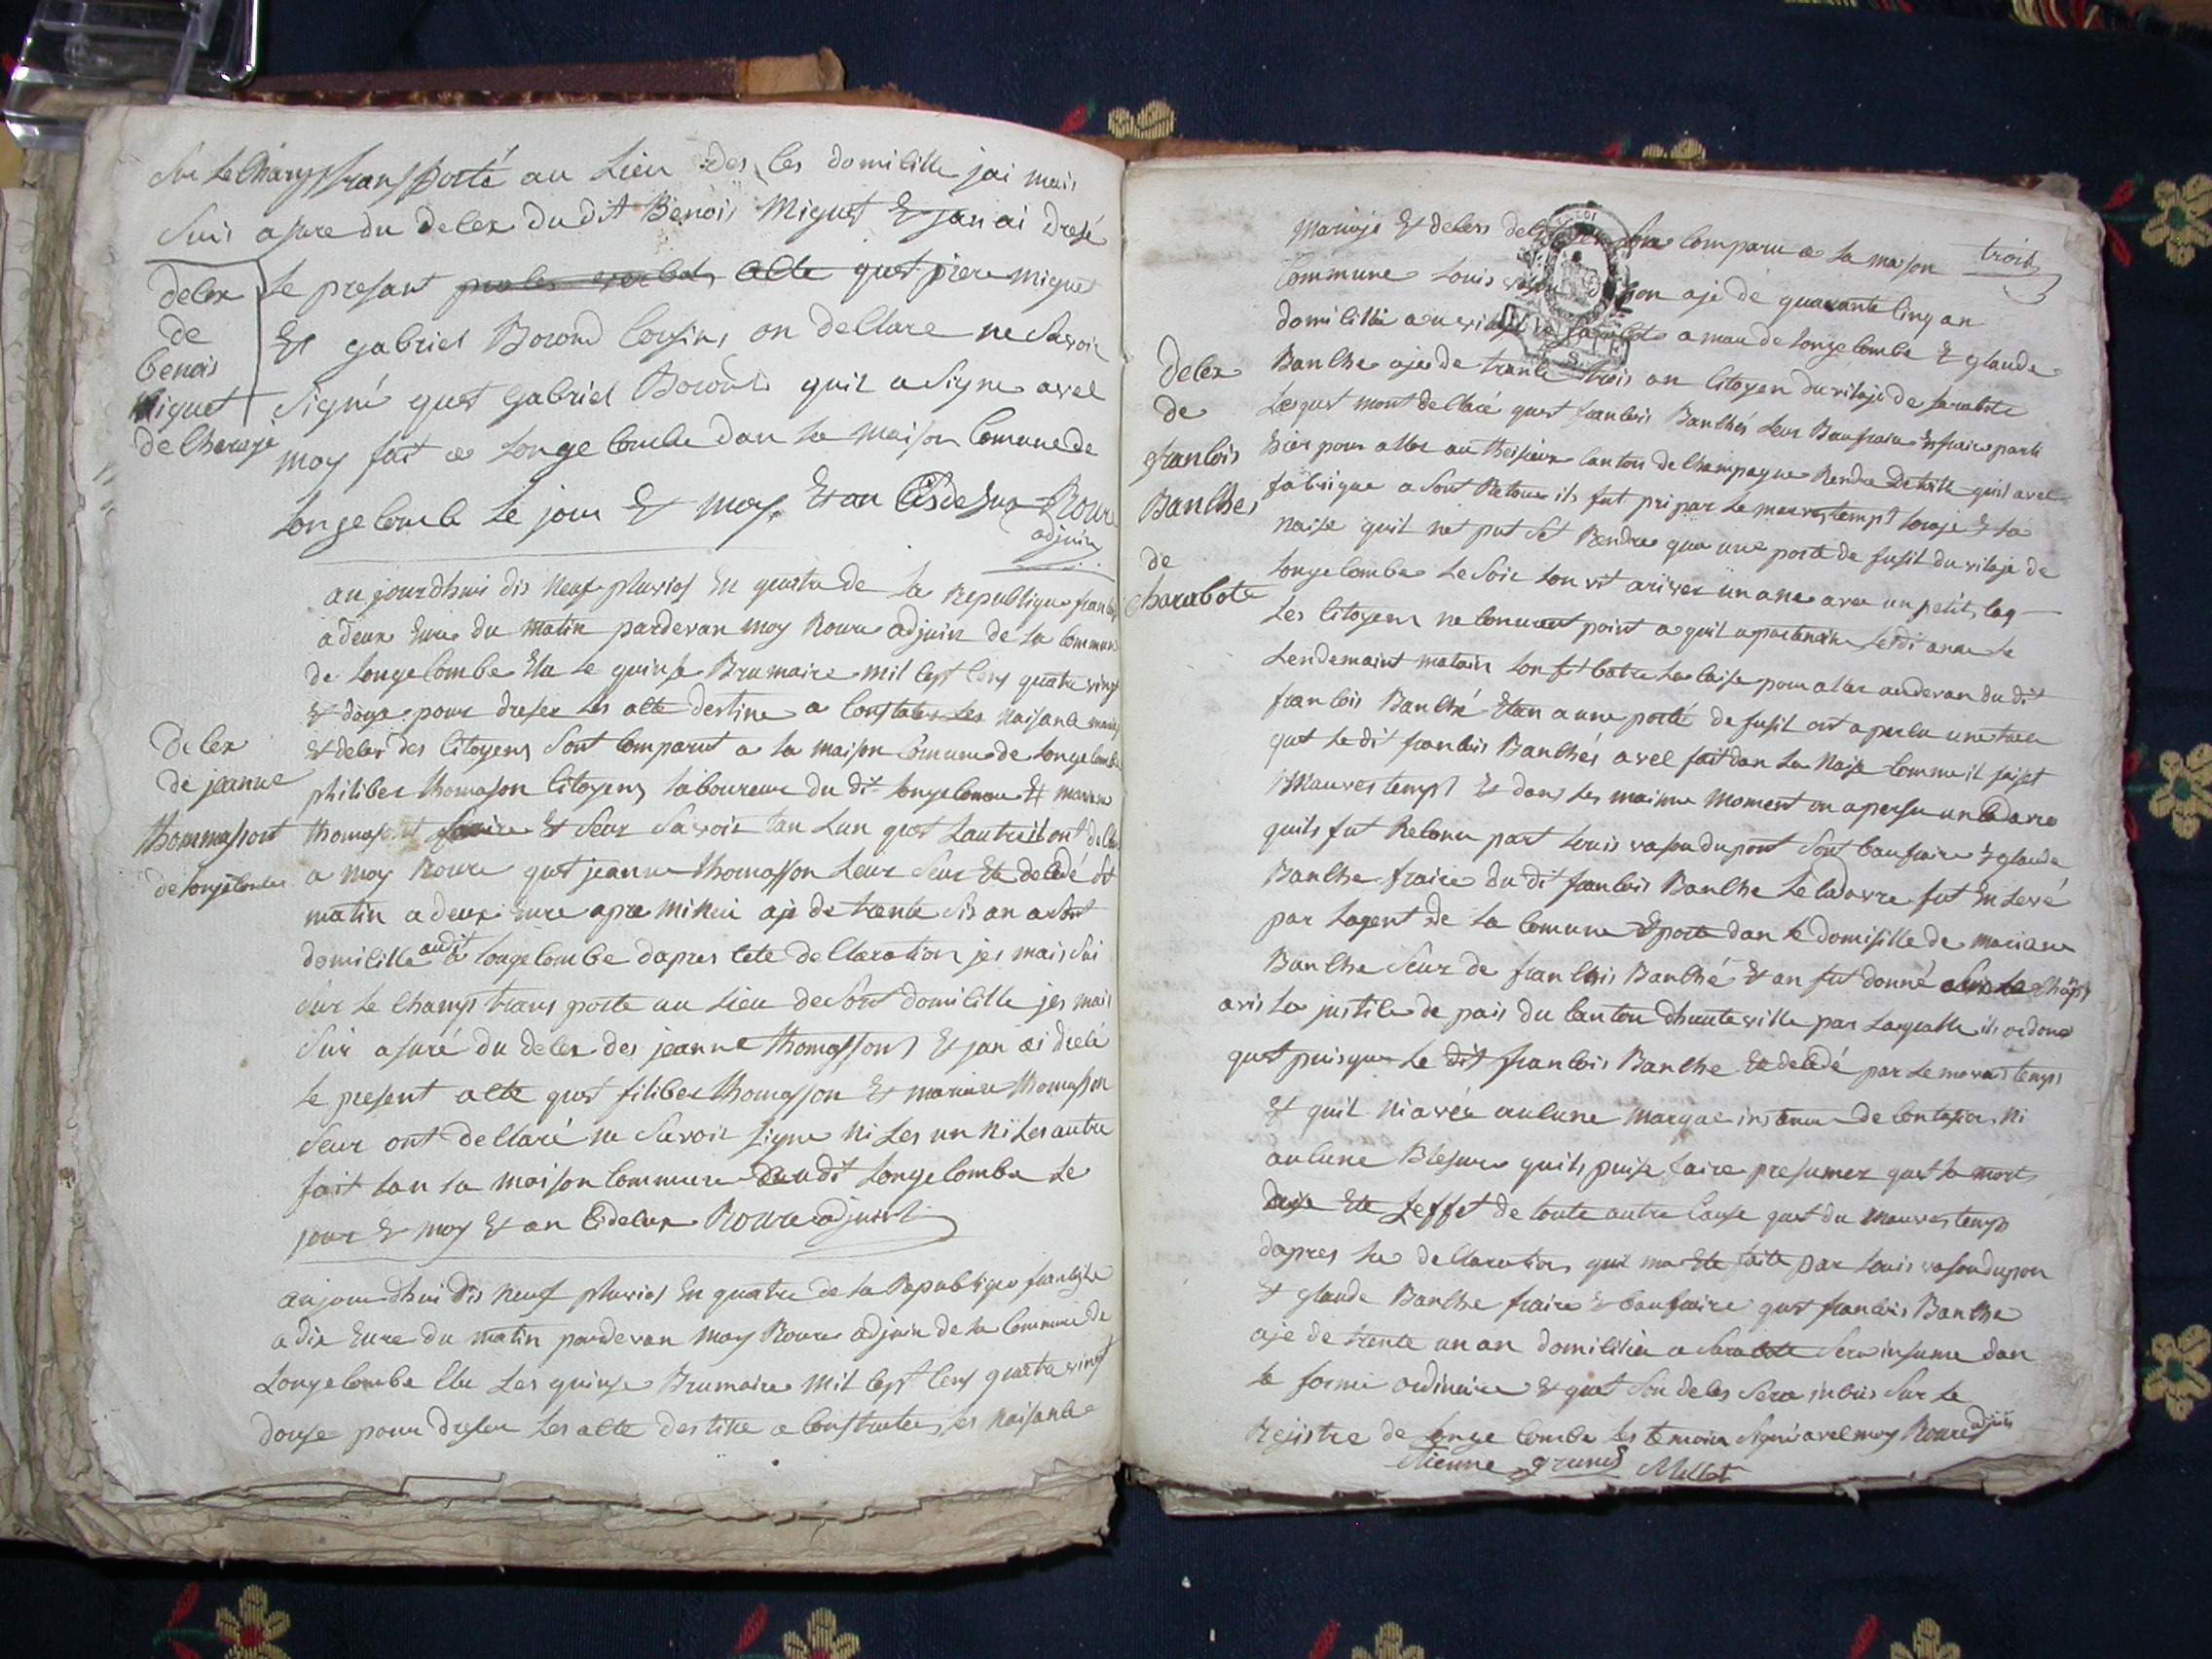 Sur Le Champ transporté au Lieu des ces domicille jai mais
Suis asure du deces du dit Benois Miguet Et jan ai dresé
deces
de
benois
Miguet
de Charaje
Le presant acte quet piere Miguet
Et gabriel Borond Cousins on declare ne Savoir
Signé quet gabriel Borond quil a Signe avec
moy fait a Longecombe dan la maison Comune de
Longecombe Le jour Et moy Et an Cisdesux Roux
adjuin
aujourdhui dis neuf pluvios En quatre de La Republique francês
a deux Eure du matin pardevan moy Roux adjuin de la Commune
de Longecombe Elu Le quinse Brumaire mil cept cens quatre vingt
Et douse pour dreser Les acte destine a Constater Les naisance mariage
deces
de jeanne
thommassont
de longecombe
Et deces des Citoyens Sont Comparut a la maison Comune de Longecombe
philiber thomason Citoyens Laboureur du dit Longecombe Et mariane
thomasont fraire Et Seur Savoir tan Lun quet Lautre il ont declare
a moy Roux quet jeanne thomasson Leur Seur Ete decedé Set
matin a deux Eure apre minui aje de trente Sis an a Sont
domicille audit a Longecombe dapres cete declaration jes mais Sui
Sur Le Champ transporte au Lieu de Sont domicille jes mais
Suis asuré du deces des jeanne thomassont Et jan ai drecé
Le present acte quet filiber thomasson Et mariane thomasson
Seur ont declaré ne Savoir Signe ni Les un ni Les autre
fait dan La maison Commune dudit Longecombe Le
jour Et moy Et an Cidesux Roux adjuint
aujourdhui dis neuf pluvios En quatre de La Republique francêse
a dix Eure du matin pardevan moy Roux adjuin de la Commune de
Longecombe Elu Les quinse Brumaire mil cept cens quatre vingt
douse pour dreser Les acte destine a Constater Les naisance
trois
mariaje Et deces des Citoyen Son Comparu a La maison
Commune Louis vason dupon aje de quarante cinq an
domicillie au vilaje de Sarabote a mau de Longecombe Et glaude
deces
de
francois
Banches
de
Charabote
Banche aje de trante trois an Citoyen du vilaje de Sarabote
Lesquet mont declaré quet francois Banchés Leur Baufraire Et fraire parti
hier pour aller au theisieux canton de Champagne Rendre de toile quil avet
fabrique a Sont Retoure ils fut pri par Le mauvestemps Loraje Et La
naise quil net put Sét Rendre qua une porté de fusil du vilaje de
Longecombe Le Soir Lon vit ariver un ane avec un petit Sac
Les Citoyens ne Conuret point a quil apartenire Ledi ane Le
Lendemaint matain Lon fit batre La Caise pour aller audevan du dit
francois Banché Etan a une porté de fusil ont apercu une trace
quet Le dit francois Banchés avet fait dan La naise Comme il faiset
mauves temps Et dans Les maime moment on apersu un Cadavre
quils fut Reconu part Louis vason dupont Sont baufraire Et glaude
Banche fraire du dit francois Banche Le Cadavre fut En Levé
par Lagent de La Comune Et porte dan Le domisille de mariane
Banche Seur de francois Banché Et an fut donné Sur Le Champ
avis La justice de pais du Canton dhauteville par Laquelle ils ordone
quet puisque Le dit francois Banche Ete decedé par Le mauvais temps
Et quil ni avéé aucune marque de Contusion ni
aucune Blesure quils puise faire presumer quet La mort
aye Ete Leffet de toute autre Cause quet du mauves temps
dapres La declaration qui ma Ete faite par Louis vason dupon
Et glaude Banche fraire Et baufraire quet francois Banche
aje de trente un an domicilié a Sarabote Sera insumé dan
La forme ordinaire Et quet Son deces Sera incris Sur Le
Rejistre de Longe Combe Les temoin Signé avec moy Roux adjuin
Etienne grund Millet